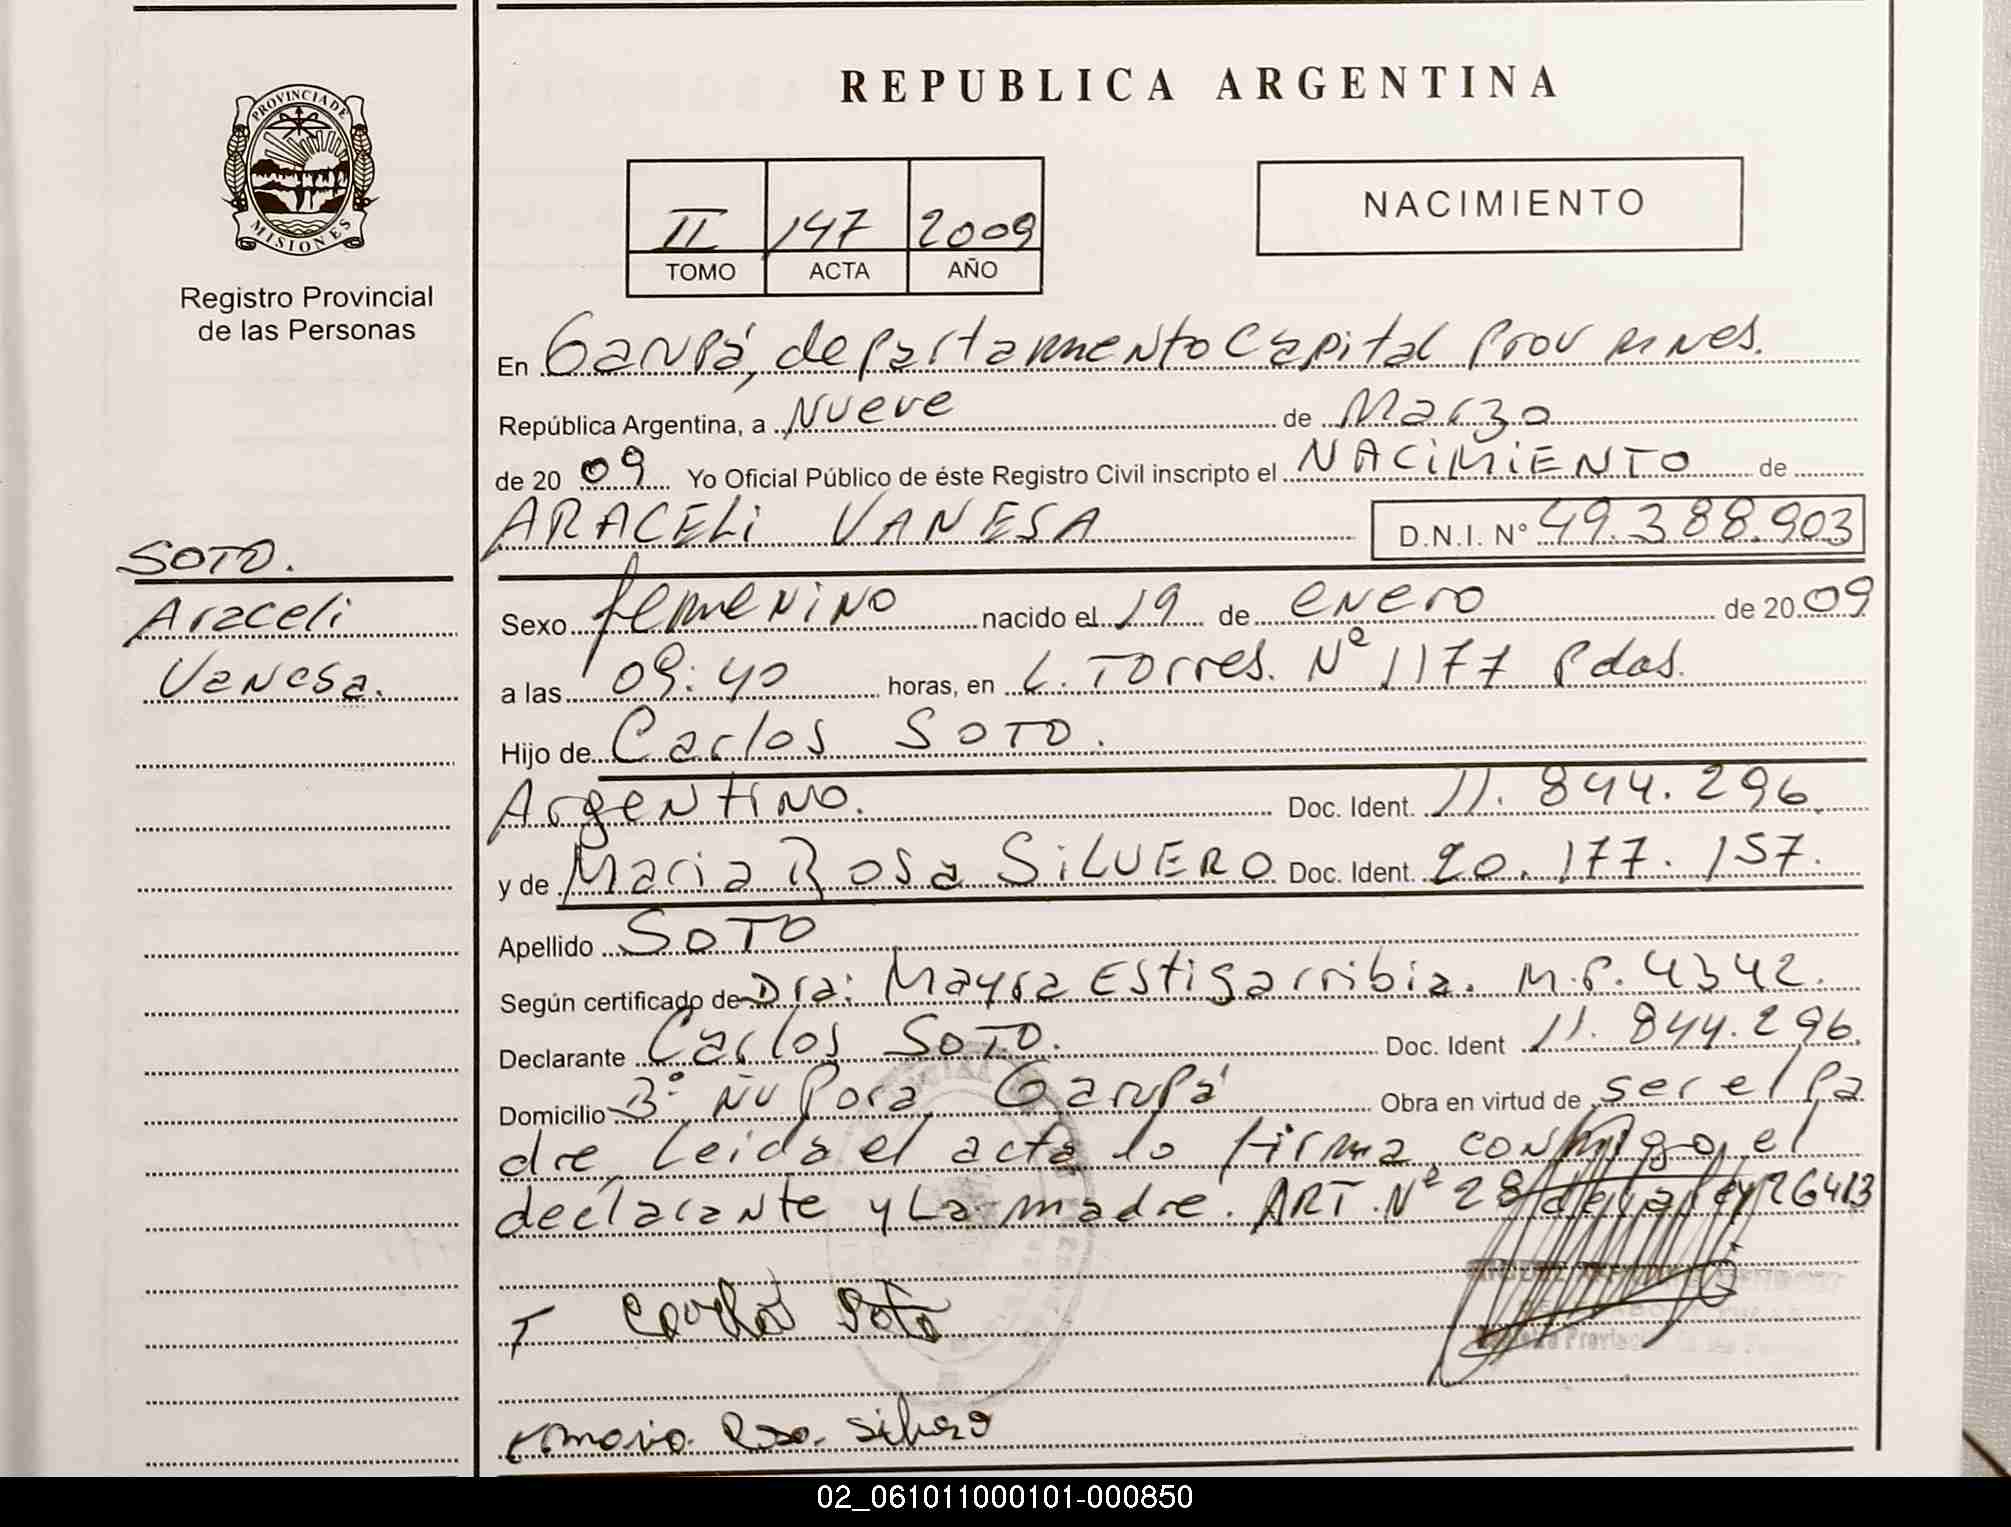 PROVINCIA DE
MISIONES
Registro Provincial
de las Personas
SOTO.
Araceli
Vanesa.
REPUBLICA ARGENTINA
II 147 2009
TOMO ACTA AÑO
NACIMIENTO
En Garupá, departamento Capital Prov Mnes.
República Argentina, a Nueve de Marzo
de 20 09 Yo Oficial Público de éste Registro Civil inscripto el NACiMiENTO de
ARACELi VANESA D.N.I. Nº 49.388.903
Sexo femenino nacido el 19 de enero de 20 09
a las 09:40 horas, en L. Torres. Nº 1177 Pdas.
Hijo de Carlos SOTO.
Argentino. Doc. Ident. 11.844.296.
y de Maria Rosa SiLVERO Doc. Ident. 20.177.157.
Apellido SOTO
Según certificado de Dra: Mayra Estigarribia. M.P. 4342.
Declarante Carlos SOTO. Doc. Ident 11.844.296.
Domicilio Bº Ñu Pora Garupá Obra en virtud de ser el Pa
dre, Leida el acta lo firma conmigo, el
declarante y La madre. ART. Nº 28 de la ley 26413
Carlos Soto
Maria Rosa Silvero
02_061011000101-000850